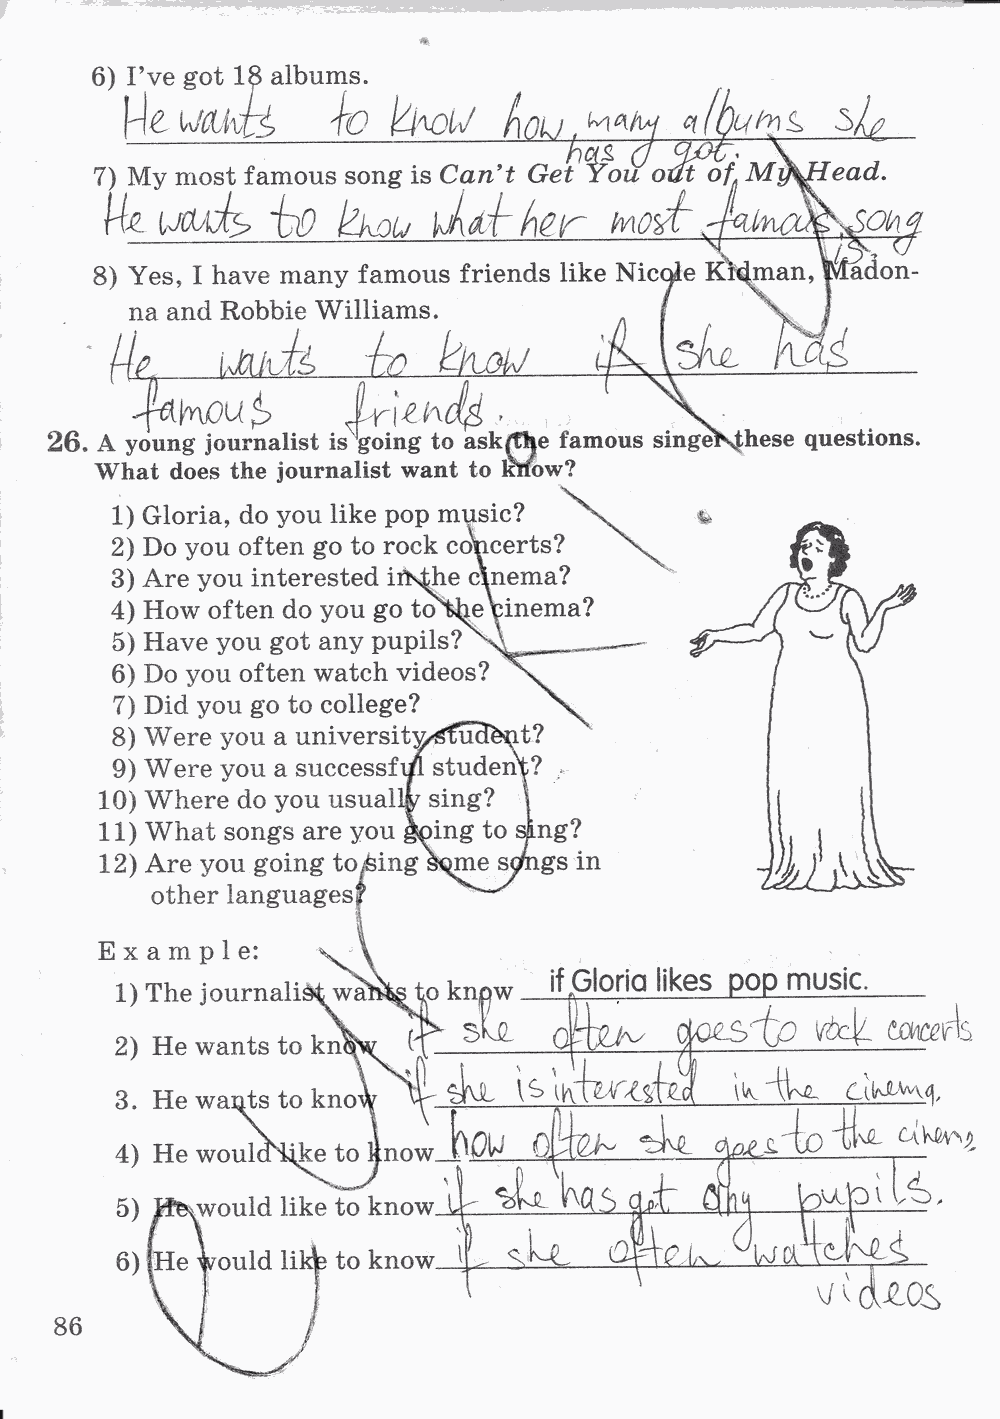 6) I've got 18 albums.
He wants to know how many albums she
has got.
7) My most famous song is Can't Get You out of My Head.
He wants to know what her most famous song
is.
8) Yes, I have many famous friends like Nicole Kidman, Madon-
na and Robbie Williams.
He wants to know if she has
famous friends.
26. A young journalist is going to ask the famous singer these questions.
What does the journalist want to know?
1) Gloria, do you like pop music?
2) Do you often go to rock concerts?
3) Are you interested in the cinema?
4) How often do you go to the cinema?
5) Have you got any pupils?
6) Do you often watch videos?
7) Did you go to college?
8) Were you a university student?
9) Were you a successful student?
10) Where do you usually sing?
11) What songs are you going to sing?
12) Are you going to sing some songs in
other languages?
Example:
1) The journalist wants to know if Gloria likes pop music.
2) He wants to know if she often goes to rock concerts
3. He wants to know if she is interested in the cinema.
4) He would like to know how often she goes to the cinema
5) He would like to know if she has got any pupils.
6) He would like to know if she often watches
videos
86